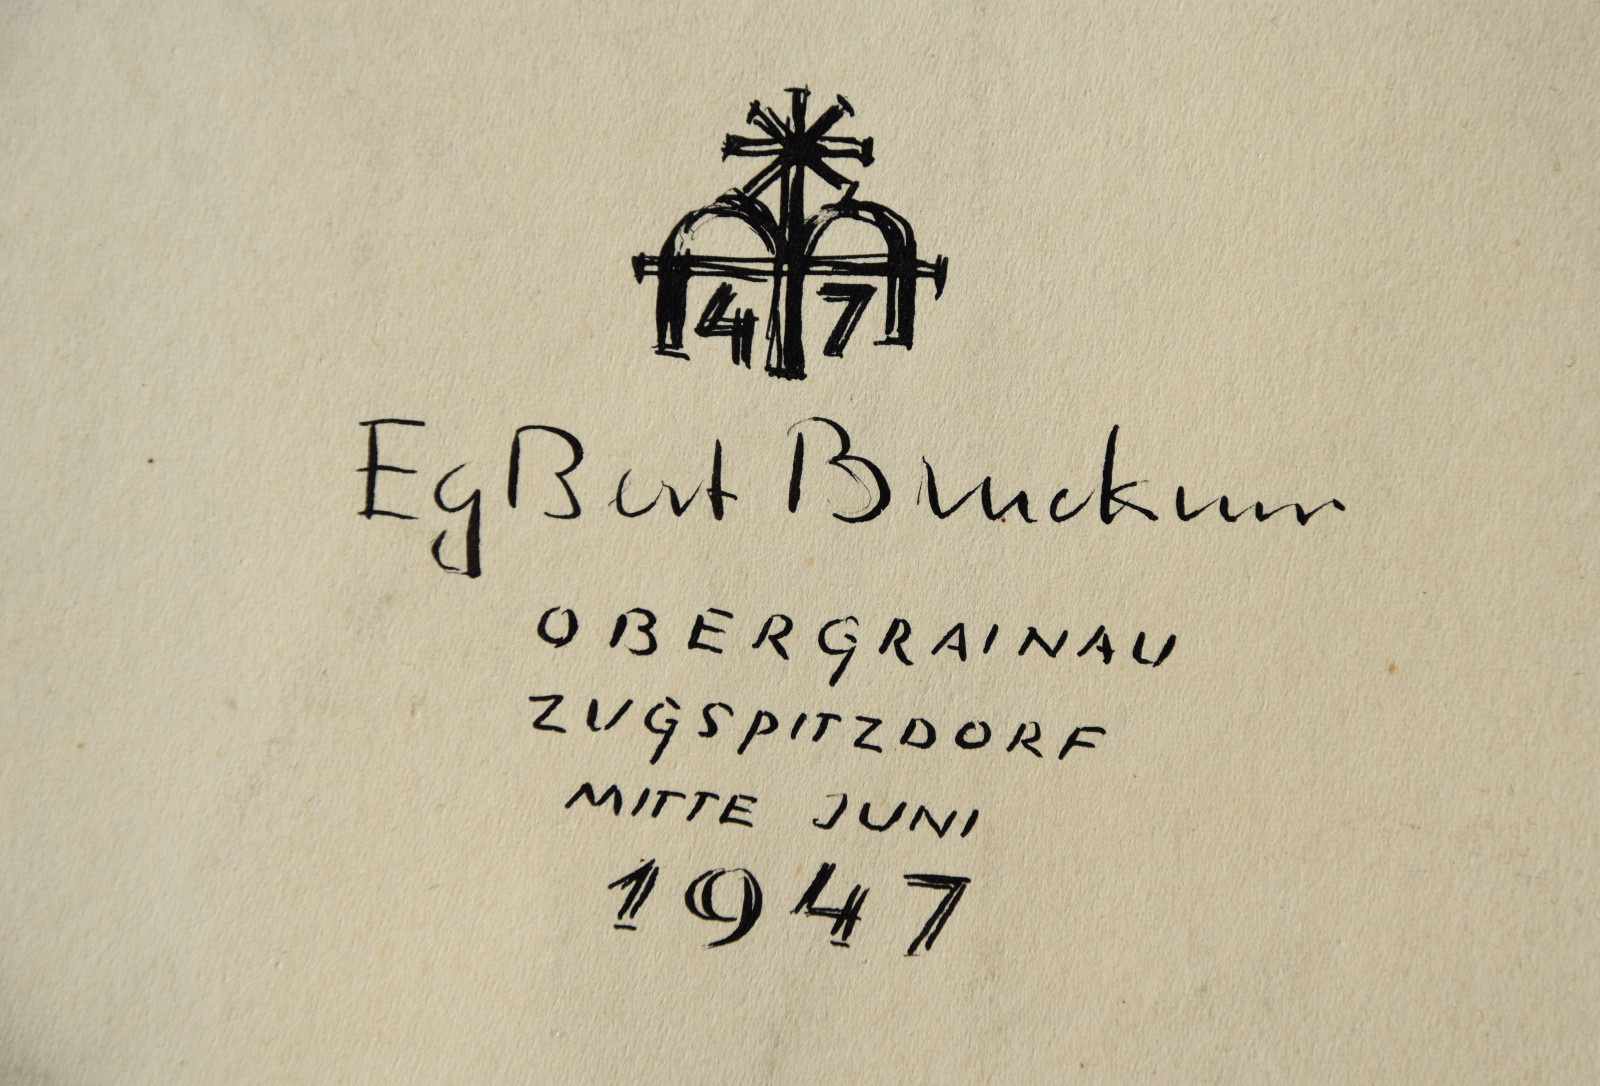 47
EgBert Bruckner
OBERGRAINAU
ZUGSPITZDORF
MITTE JUNI
1947